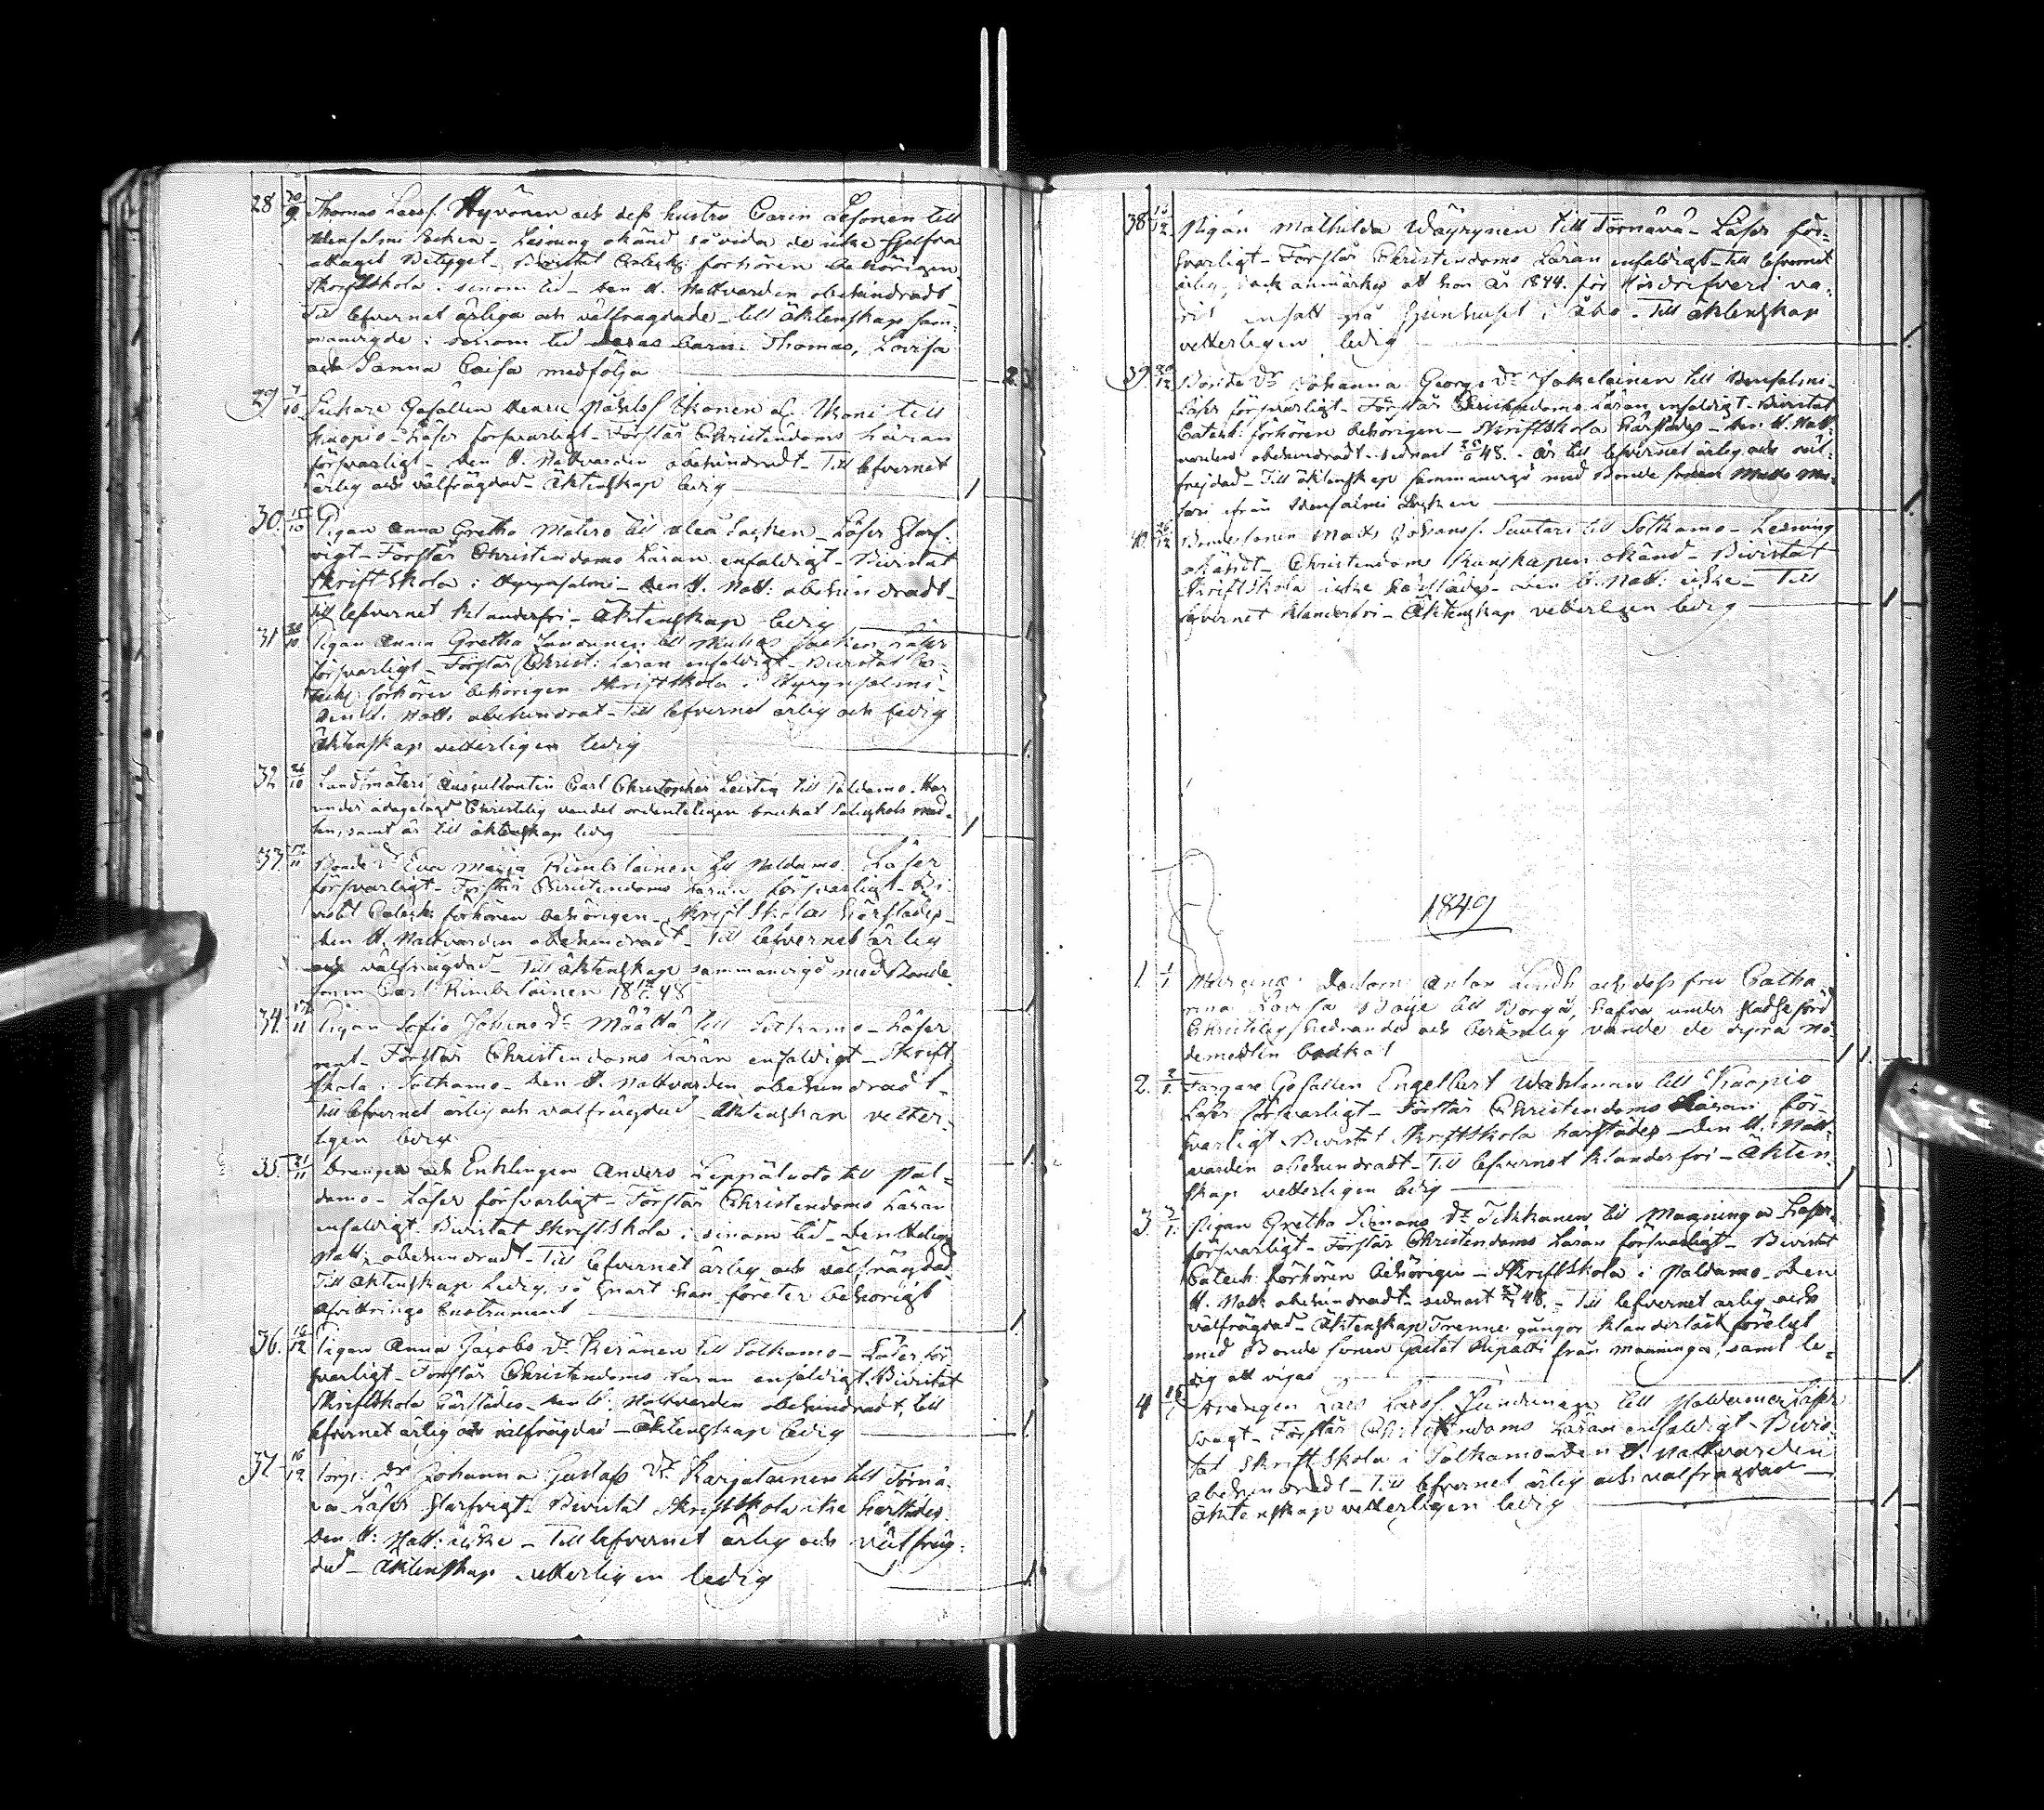 28 30/9 Thomas Larsf. Hyvönen och dess hustru Carin Lesonen till
Idensalmi Socken - Läsning okänd så vida de icke sjelfva
attagit Betyget - Bivistat Catechz: förhören behörigen
Skriftskola i sinom tid - den H. Nattvarden obehindradt
Till lefvernet ärliga och välfrägdade - till äktenskap sam-
manvigde i sinom tid deras barn: Thomas, Lovisa
och Sanna Caisa medfölja 2. 3.
29 7/10 Gesällen Henric Ikonen till
Kuopio - Läser försvarligt - Förstår Christendoms Läran
försvarligt - den H. Nattvarden obehindradt - Till lefvernet
ärlig och välfrägdad - Äktenskap ledig 1
30. 15/10 Pigan Anna Gretha Matero till Socken - Läser Slarf-
vigt - Förstår Christendoms Läran enfaldigt - Bivistat
Skriftskola i Hyrynsalmi - den H. Natt: obehindradt -
till lefvernet klanderfri - Äktenskap ledig 1
31 20/10 Pigan Anna Gretha till Muhos Socken Läser
försvarligt - Förstår Christ: Läran enfaldigt - Bivistat Ca-
techz förhören behörigen Skriftskola i Hyrynsalmi -
den H. Natt: obehindrat - Till lefvernet ärlig och ledig
Äktenskap vetterligen ledig 1.
32 26/10 Landtmäteri Auscultanten Carl Christopher Leistén till Paldamo. Har
under ådagalagd Christelig vandel ordenteligen brukat Salighets med-
len, samt är till äktenskap ledig 1
33. 17/11 Bonde dr Eva Maria Kimbelainen till Paldamo. Läser
försvarligt - Förstår Christendoms Läran försvarligt - Bi-
vistat Catech: förhören behörigen - Skrift Skolas härstädes -
den H. Nattvarden obehindradt - Till lefvernet ärlig
och välfrägdad - Till äktenskap sammanvigd med Bonde
sonen Carl Kimbelainen 48 1
34. 17/11 Pigan Sofia Johans dr Määttä till Sotkamo - Läser
rent - Förstår Christendoms Läran enfaldigt - Skrift
skola i Sotkamo - den H. Nattvarden obehindradt -
Till lefvernet ärlig och välfrägdad - Äktenskap vetter-
ligen ledig 1.
35. 21/11 Drängen och Enklingen Anders Leppäluoto till Pal-
damo - Läser försvarligt - Förstår Christendoms Läran
enfaldigt. Bivistat Skriftskola i sinom tid - den Helige
Natt: obehindradt - Till lefvernet ärlig och välfrägdad
Till Äktenskap Ledig, så snart han företer behörigt
afvittrings Instrument 1.
36. 12 Pigan Anna Jacobs dr Keränen till Sotkamo - Läser för-
svarligt - Förstår Christendoms Läran enfaldigt. Bivistat
Skriftskola härstädes - den H. Nattvarden obehindradt, till
lefvernet ärlig och välfrägdad - Äktenskap ledig 1
37 16/12 Torp. dr Johanna Gustafs dr Karjalainen till Törnä-
vä - Läser Slarfvigt - Bivistat Skriftskola icke härstädes
den H: Natt: icke - Till lefvernet ärlig och välfräg-
dad - Äktenskap vetterligen ledig 1.
38 12 Pigan Mathilda Wäyrynen till Törnävä - Läser för-
svarligt - Förstår Christendoms Läran enfaldigt - till lefvernet
ärlig, dock anmärkes att hon år 1844. för Lösdrifveri va-
rit insatt på Spinhuset i Åbo - Till äktenskap
vetterligen ledig 1.
39 20/12 Bonde dr Johanna Georgs dr Jokelainen till Idensalmi -
Läser försvarligt - Förstår Christendoms Läran enfaldigt - Bivistat
Catech: förhören behörigen - Skriftskola härstädes - den H. Natt-
varden obehindradt - sednast 48. - Är till lefvernet ärlig och väl-
frejdad - Till äktenskap sammanvigd med Bonde sonen
från Idensalmi Socken 1.
40. 26/12 Bondesonen Mats Johansf. Suutari till Sotkamo - Läsning
okändt - Christendoms kunskapen okänd - Bivistat
Skriftskola icke härstädes - Den H. Natt: icke - Till
lefvernet klanderfri - Äktenskap vetterligen ledig 1
1849
1. 1/1 Doctorn Anton Lindh och dess fru Catha-
rina Lovisa till Borgå, hafva under stadse förd
Christelig, hedrande och berömlig vandel de dyra nå-
demedlen brukat 1 1.
2. 2/1. Färgare Gesällen Engelbert Wahlman till Kuopio
Läser försvarligt - Förstår Christendoms Läran för-
svarligt Bivistat Skriftskola härstädes - den H. Natt-
varden obehindradt - Till lefvernet klanderfri - Äkten-
skap vetterligen ledig 1
3 3/1. Pigan Gretha Simons dr Tikkanen till Maaninga Läser
försvarligt - Förstår Christendoms Läran försvarligt - Bivistat
Catech: förhören behörigen - Skriftskola i Paldamo - den
H. Natt. obehindradt - sednast 48. - Till lefvernet ärlig och
välfrägdad - Äktenskap Trenne gångor klanderlöst förelyst
med Bonde sonen Gustaf Ripatti från Maaninga, samt le-
dig att vigas 1
4 Drängen Lars Larsf. till Paldamo Läser
svagt - Förstår Christendoms Läran enfaldigt - Bivis-
tat Skriftskola i Sotkamo - den H. Nattvarden
obehindradt - Till lefvernet ärlig och välfrägdad -
äktenskap vetterligen ledig 1